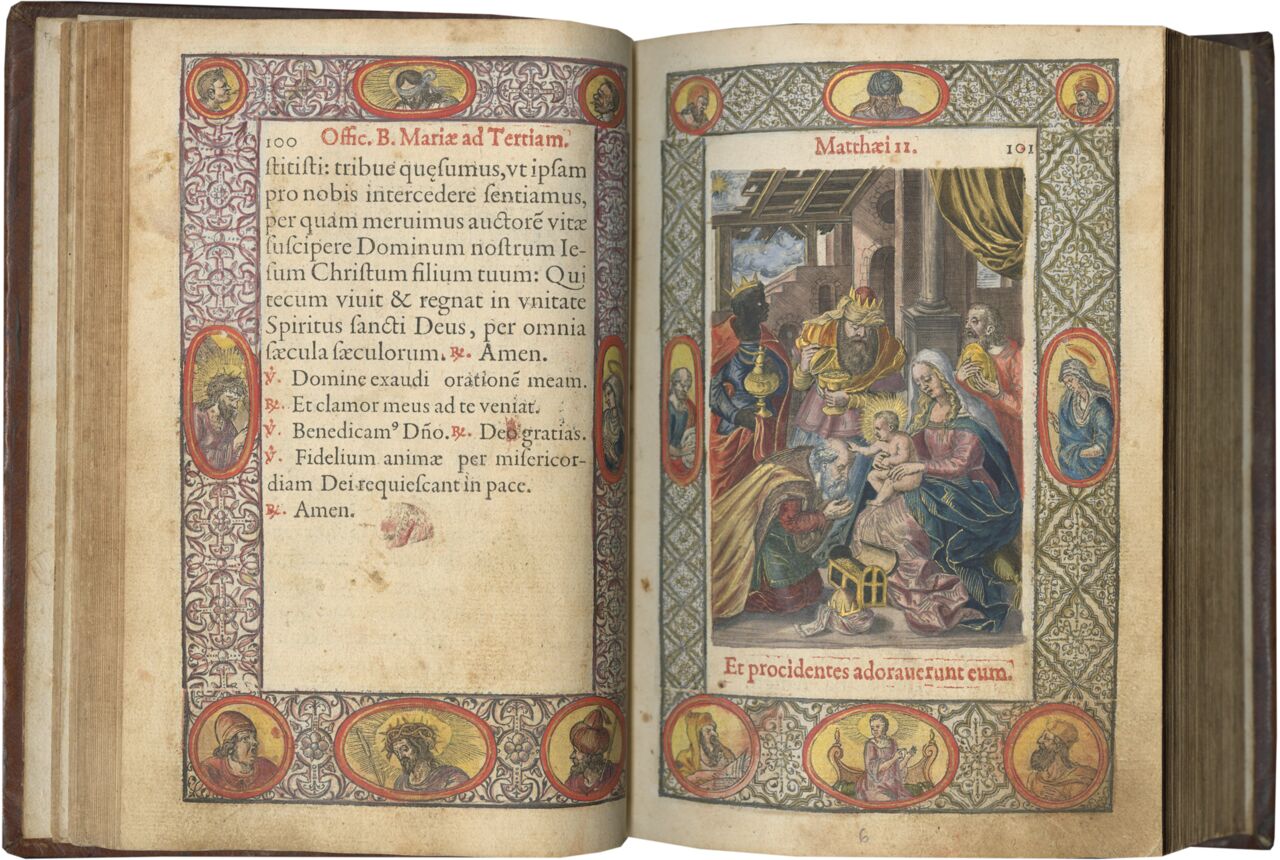 100 Offic. B. Mariæ ad Tertiam.
ſtitiſti: tribue quęſumus, vt ipſam
pro nobis intercedere ſentiamus,
per quam meruimus auctorē vitæ
ſuſcipere Dominum noſtrum Ie-
ſum Chriſtum filium tuum: Qui
tecum viuit & regnat in vnitate
Spiritus ſancti Deus, per omnia
ſæcula ſæculorum. ℞. Amen.
℣. Domine exaudi orationē meam.
℞. Et clamor meus ad te veniat.
℣. Benedicamꝰ Dño. ℞. Deo gratias.
℣. Fidelium animæ per miſericor-
diam Dei requieſcant in pace.
℞. Amen.
Matthæi 11. 101
Et procidentes adorauerunt eum.
6